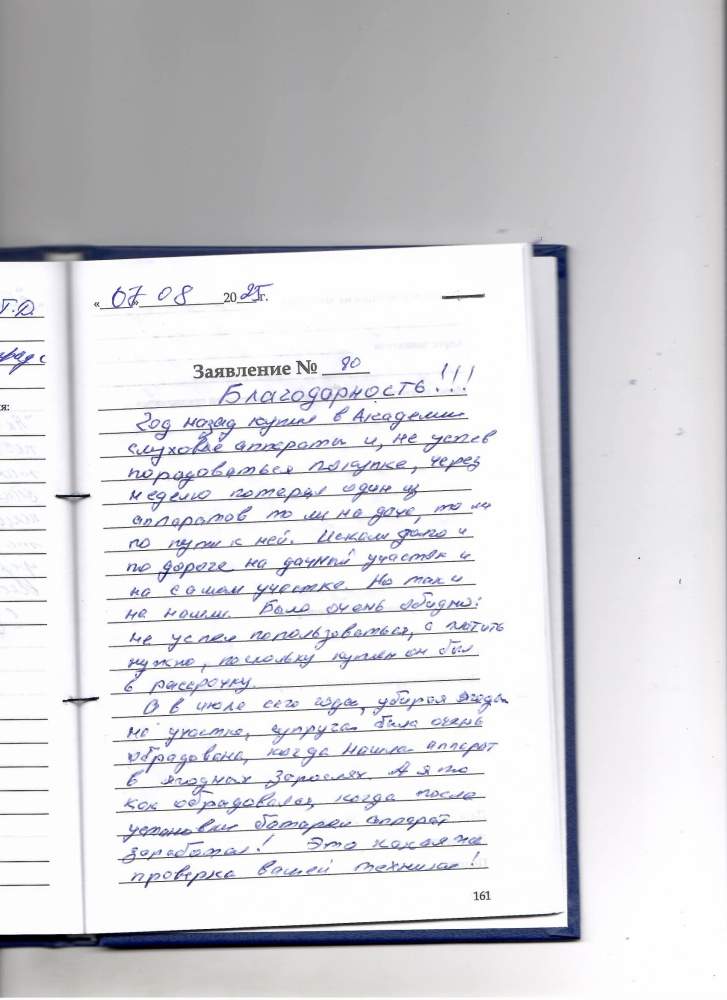 Т.Д.
ия:
« 07 » 08 2025г.
Заявление № 80
Благодарность!!!
Год назад купил в Академии
слуховые аппараты и, не успев
порадоваться покупке, через
неделю потерял один из
аппаратов то ли на даче, то ли
по пути к ней. Искали долго и
по дороге на дачный участок и
на самом участке. Но так и
не нашли. Было очень обидно:
не успел попользоваться, а платить
нужно, поскольку куплен он был
в рассрочку.
В в июле сего года, убирая ягоды
на участке, супруга была очень
обрадована, когда нашла аппарат
в ягодных зарослях. А я то
как обрадовался, когда после
установки батареи аппарат
заработал! Это какая же
проверка вашей технике!
161